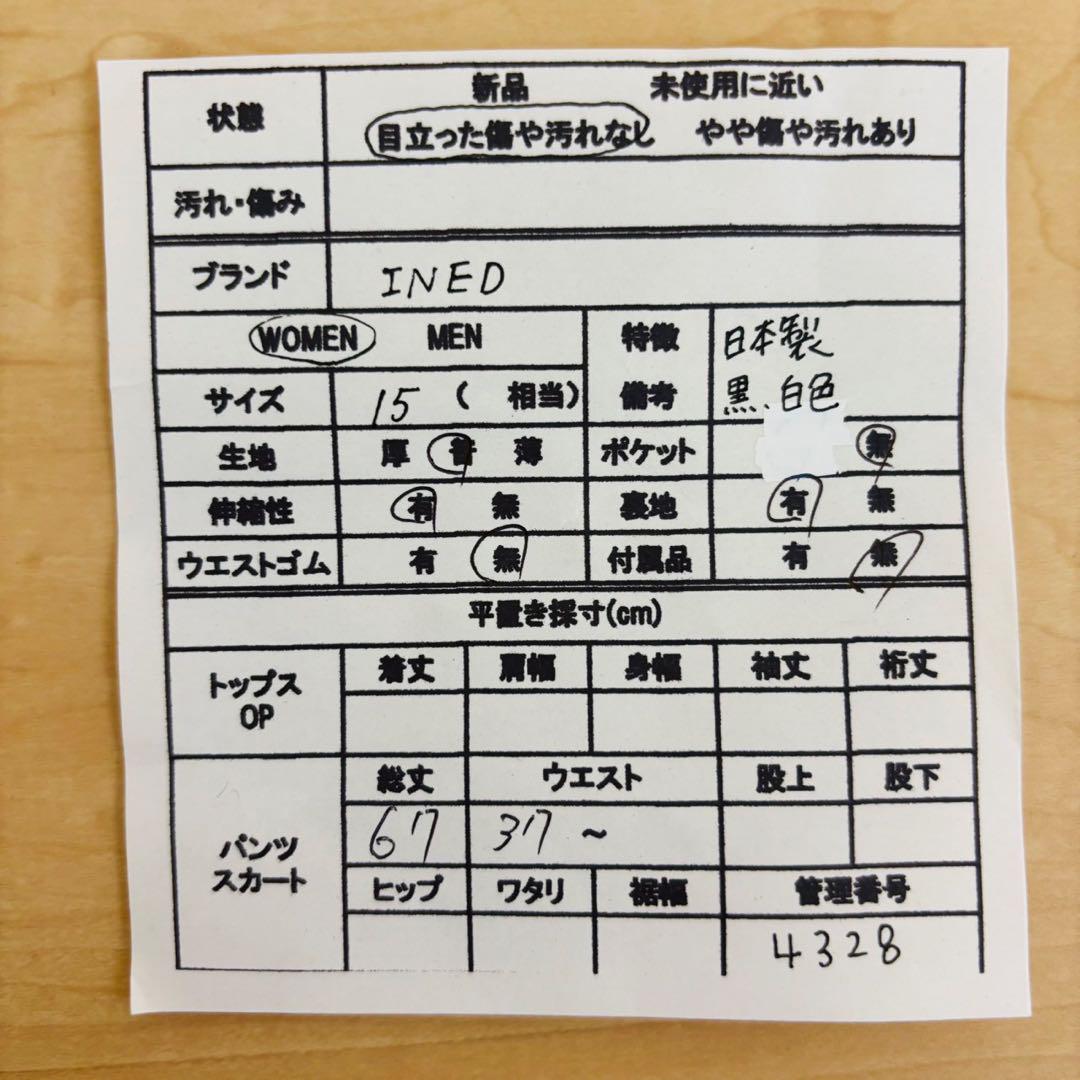 状態 新品 未使用に近い
目立った傷や汚れなし やや傷や汚れあり
汚れ・傷み
ブランド INED
WOMEN MEN 特徴 日本製
サイズ 15 ( 相当) 備考 黒、白色
生地 厚 普 薄 ポケット 無
伸縮性 有 無 裏地 有 無
ウエストゴム 有 無 付属品 有 無
平置き採寸(cm)
トップス
OP
着丈 肩幅 身幅 袖丈 裄丈
パンツ
スカート
総丈 ウエスト 股上 股下
67 37 ~
ヒップ ワタリ 裾幅 管理番号
4328